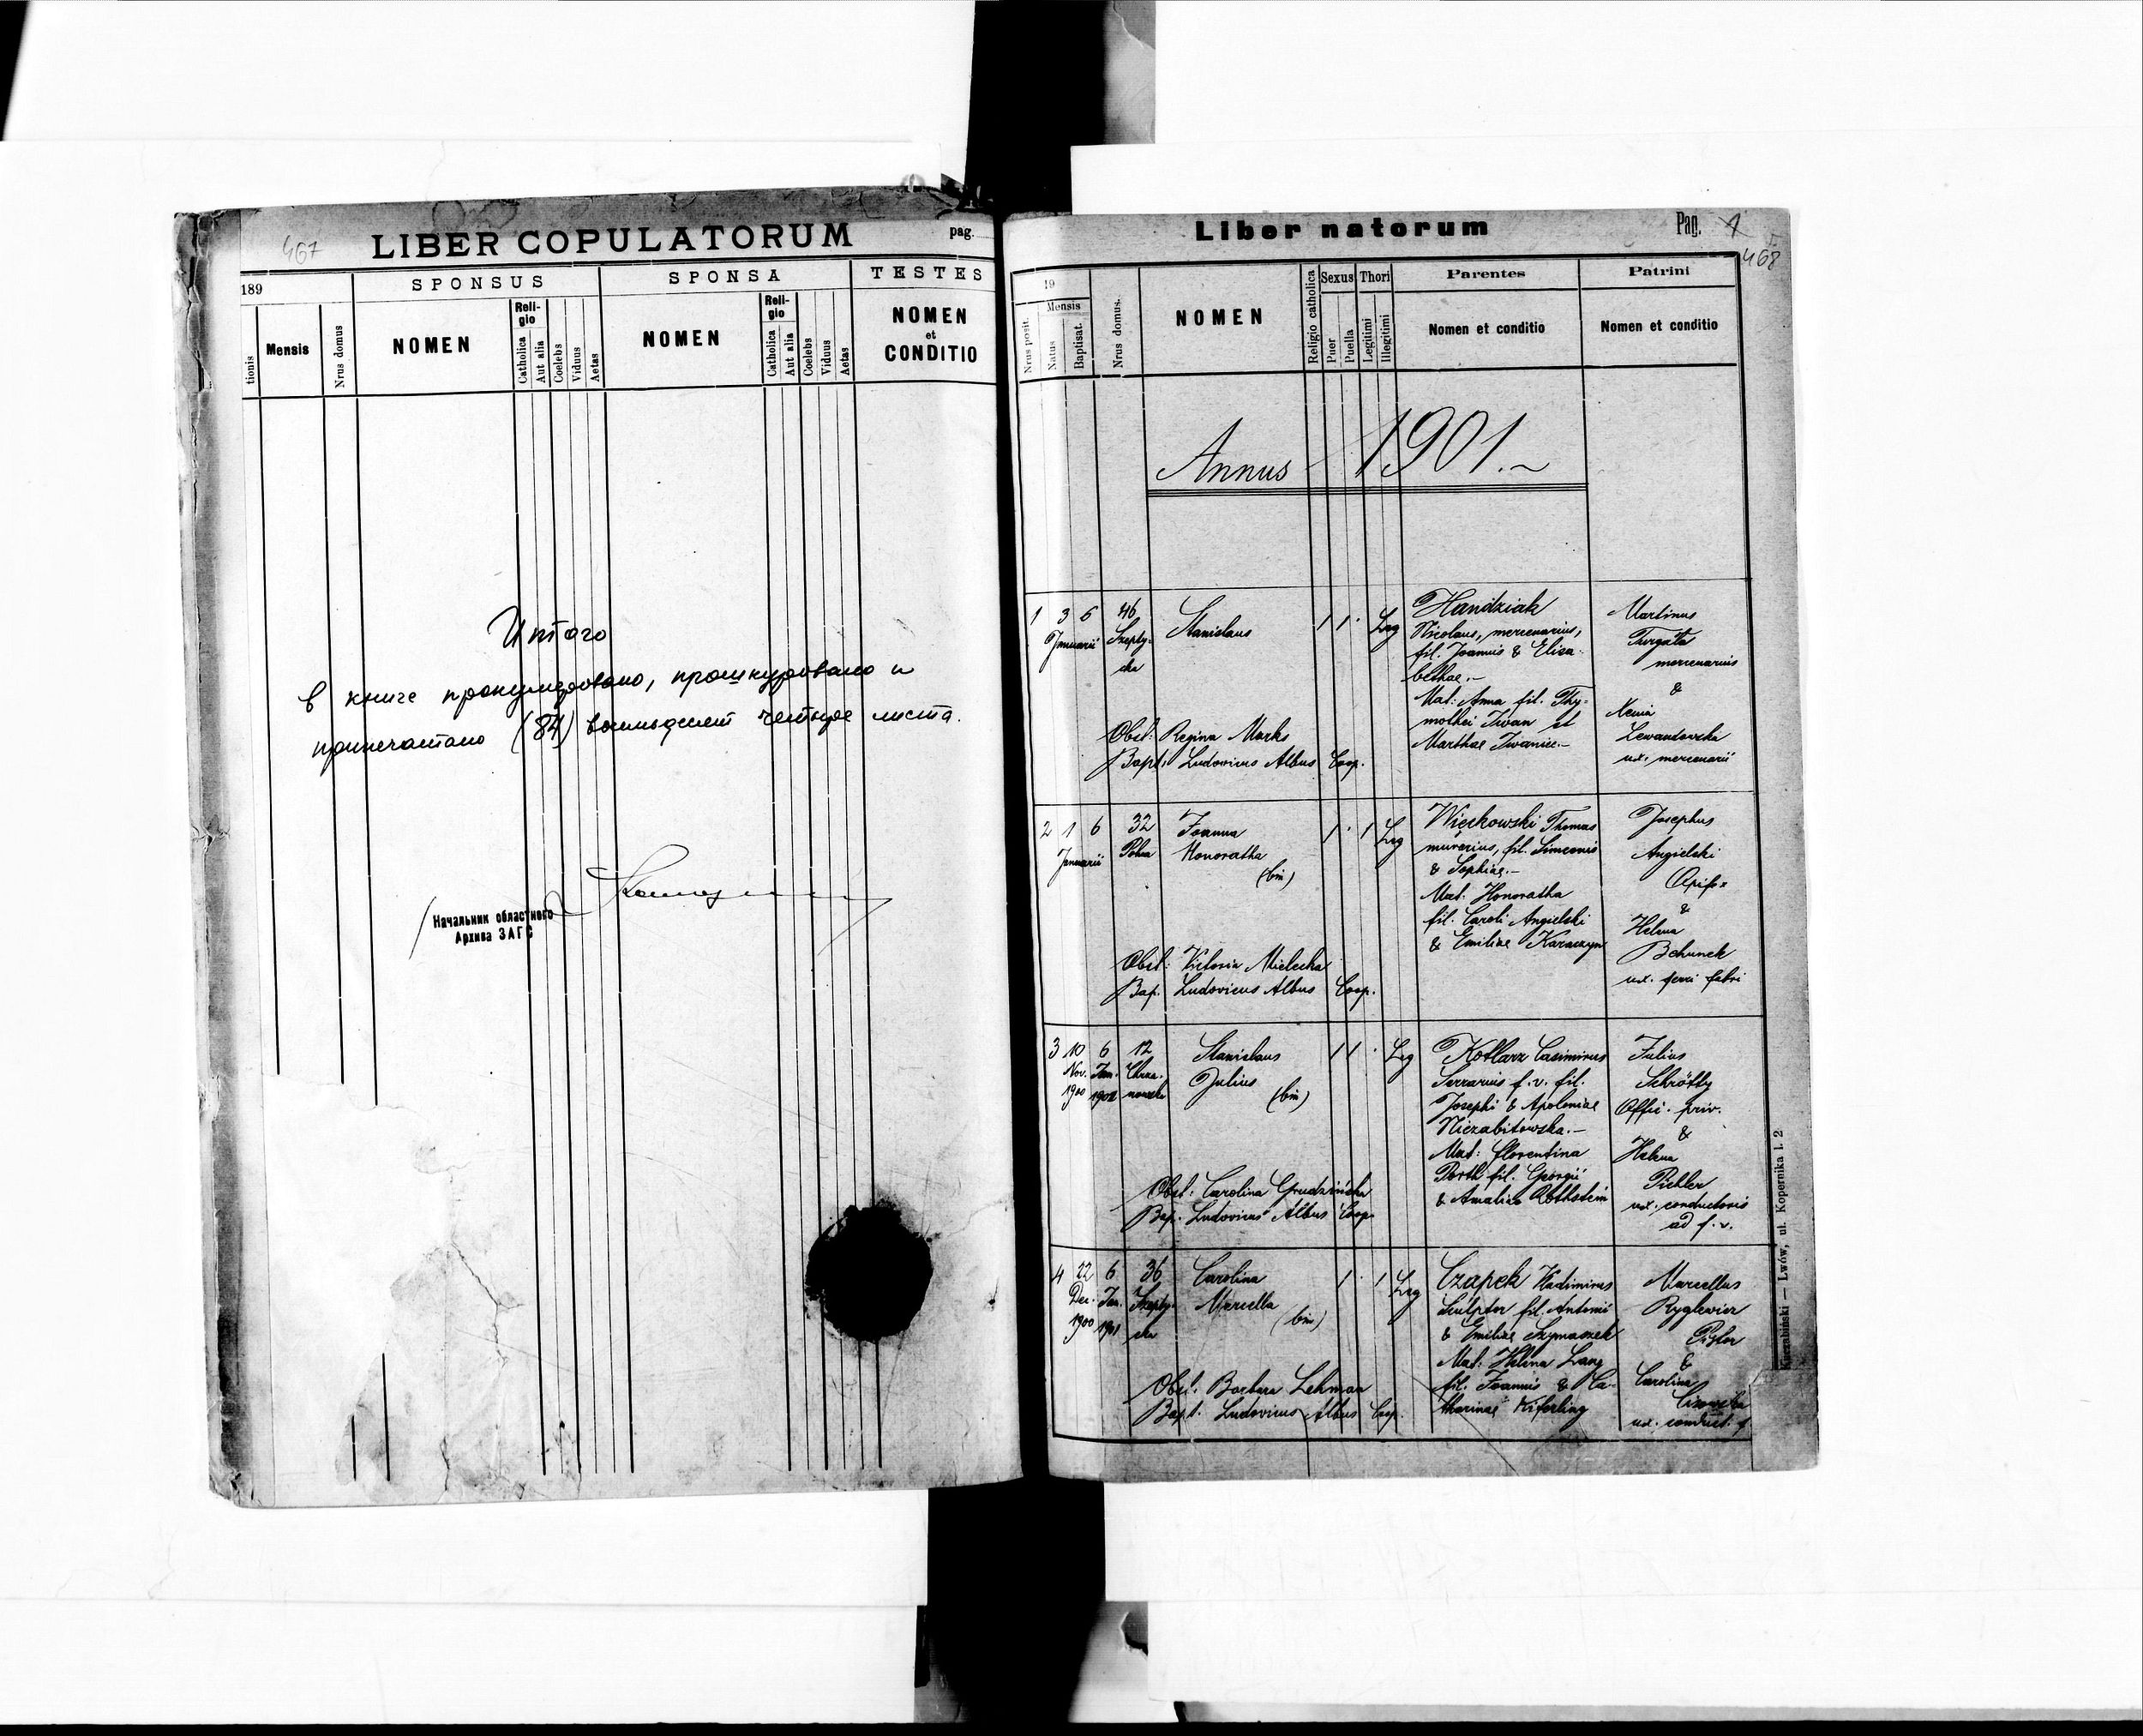 467
LIBER COPULATORUM
pag.
189
SPONSUS
SPONSA
TESTES
tionis
Mensis
Nrus domus
NOMEN
Religio
Catholica
Aut alia
Coelebs
Viduus
Aetas
NOMEN
Religio
Catholica
Aut alia
Coelebs
Viduus
Aetas
NOMEN
et
CONDITIO
Итого
В книге пронумеровано, прошнуровано и
припечатано (84) восемьдесят четыре листа.
Начальник областного
Архива ЗАГС
Liber natorum
Pag. 1
468
19
Nrus posit.
Mensis
Natus
Baptisat.
Nrus domus.
NOMEN
Religio catholica
Sexus
Puer
Puella
Thori
Legitimi
Illegitimi
Parentes
Nomen et conditio
Patrini
Nomen et conditio
Annus 1901.
1 3 6 46 Stanislaus 1 1 Leg
Januarii Szepty-
cka
Handziak
Nicolaus, mercenarius,
fil. Joannis & Elisa-
bethae.-
Mat: Anna fil. Thy-
mothei Iwan et
Marthae Iwaniec.-
Martinus
mercenarius
&
Xenia
Lewandowska
ux. mercenarii
Obst: Regina Marks
Bapt. Ludovicus Albus Coop.
2 1 6 32 Joanna 1 1 Leg
Januarii Polna Honoratha
(bin)
Więckowski Thomas
murarius, fil. Simeonis
& Sophiae.-
Mat. Honoratha
fil. Caroli Angielski
& Emiliae Karaczyn
Josephus
Angielski
Opifex
&
Helena
Bchunek
ux. ferri fabri
Obst: Victoria Mielecka
Bap. Ludovicus Albus Coop.
3 10 6 12 Stanislaus 1 1 Leg
Nov. Jan. Chrza-
1900 1901 nowska
Julius
(bin)
Kotlarz Casimirus
Serrarius f.v. fil.
Josephi & Apoloniae
Niezabitowska.-
Mat: Florentina
Porth fil. Georgii
& Amaliae
Julius
Offic. priv.
&
Helena
Pichler
ux. conductoris
ad f.v.
Obst: Carolina Grudzińska
Bap. Ludovicus Albus Coop.
4 22 6 36 Carolina 1 1 Leg
Dec. Jan. Szepty-
1900 1901 cka
Marcella
(bin)
Czapek Wladimirus
Sculptor fil. Antonii
& Emiliae Szymaszek
Mat: Helena Lang
fil. Joannis & Ca-
tharinae Kiferling
Marcellus
Ryglewicz
Pistor
&
Carolina
Cisowska
ux. conduct. f
Obst: Barbara Lehman
Bapt. Ludovicus Albus Coop.
Kuczabiński — Lwów, ul. Kopernika l. 2